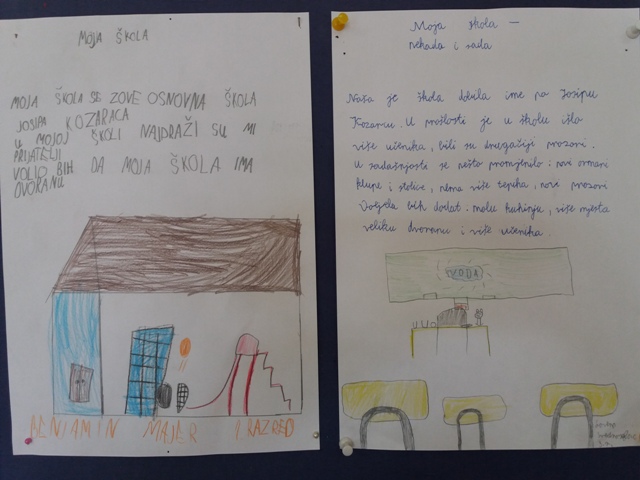 MOJA ŠKOLA
MOJA ŠKOLA SE ZOVE OSNOVNA ŠKOLA
JOSIPA KOZARACA
U MOJOJ ŠKOLI NAJDRAŽI SU MI
PRIJATELJI
VOLIO BIH DA MOJA ŠKOLA IMA
DVORANU.
BENJAMIN MAJER 1. RAZRED
Moja škola -
nekada i sada
Naša je škola dobila ime po Josipu
Kozarcu. U prošlosti je u školu išlo
više učenika, bili su drugačiji prozori.
U sadašnjosti se nešto promjenilo: novi ormari
klupe i stolice, nema više tepiha, novi prozori
Voljela bih dodat malu kuhinju, više mjesta
veliku dvoranu i više učenika.
VODA